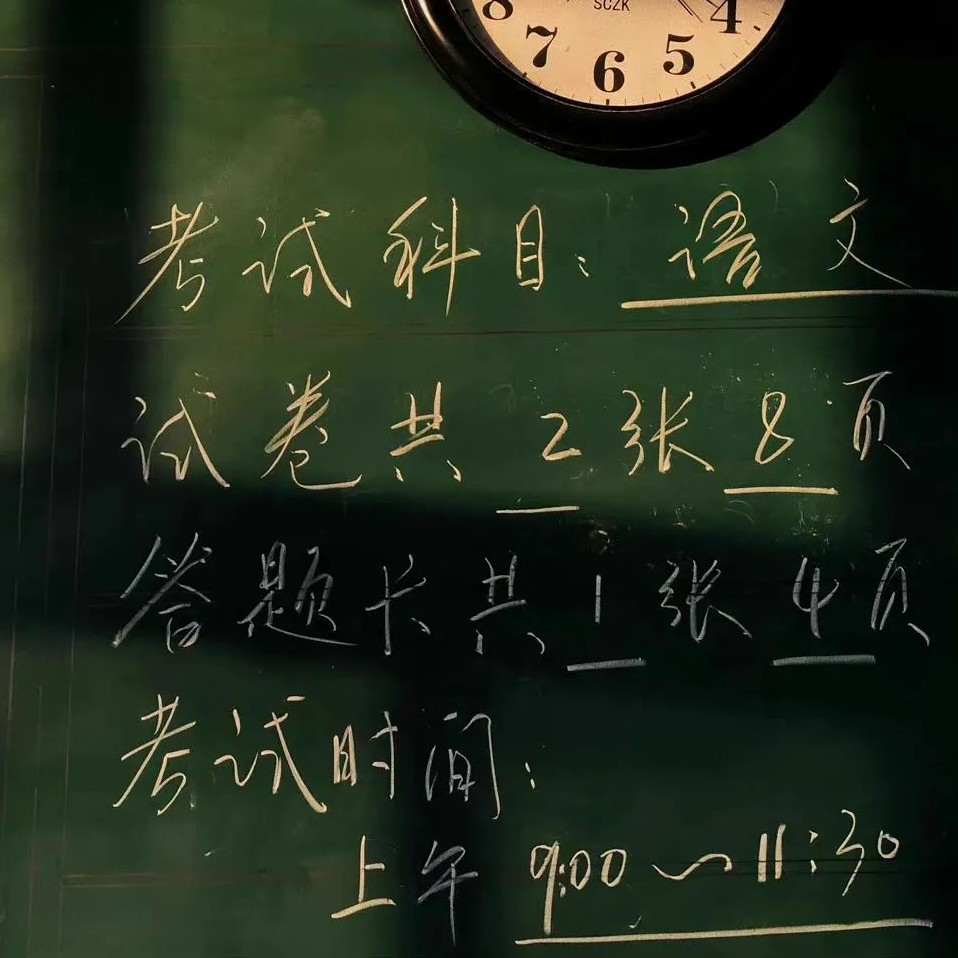 8 7 6 5 4
SCZK
考试科目：语文
试卷共 2 张 8 页
答题卡共 1 张 4 页
考试时间：
上午 9:00～11:30